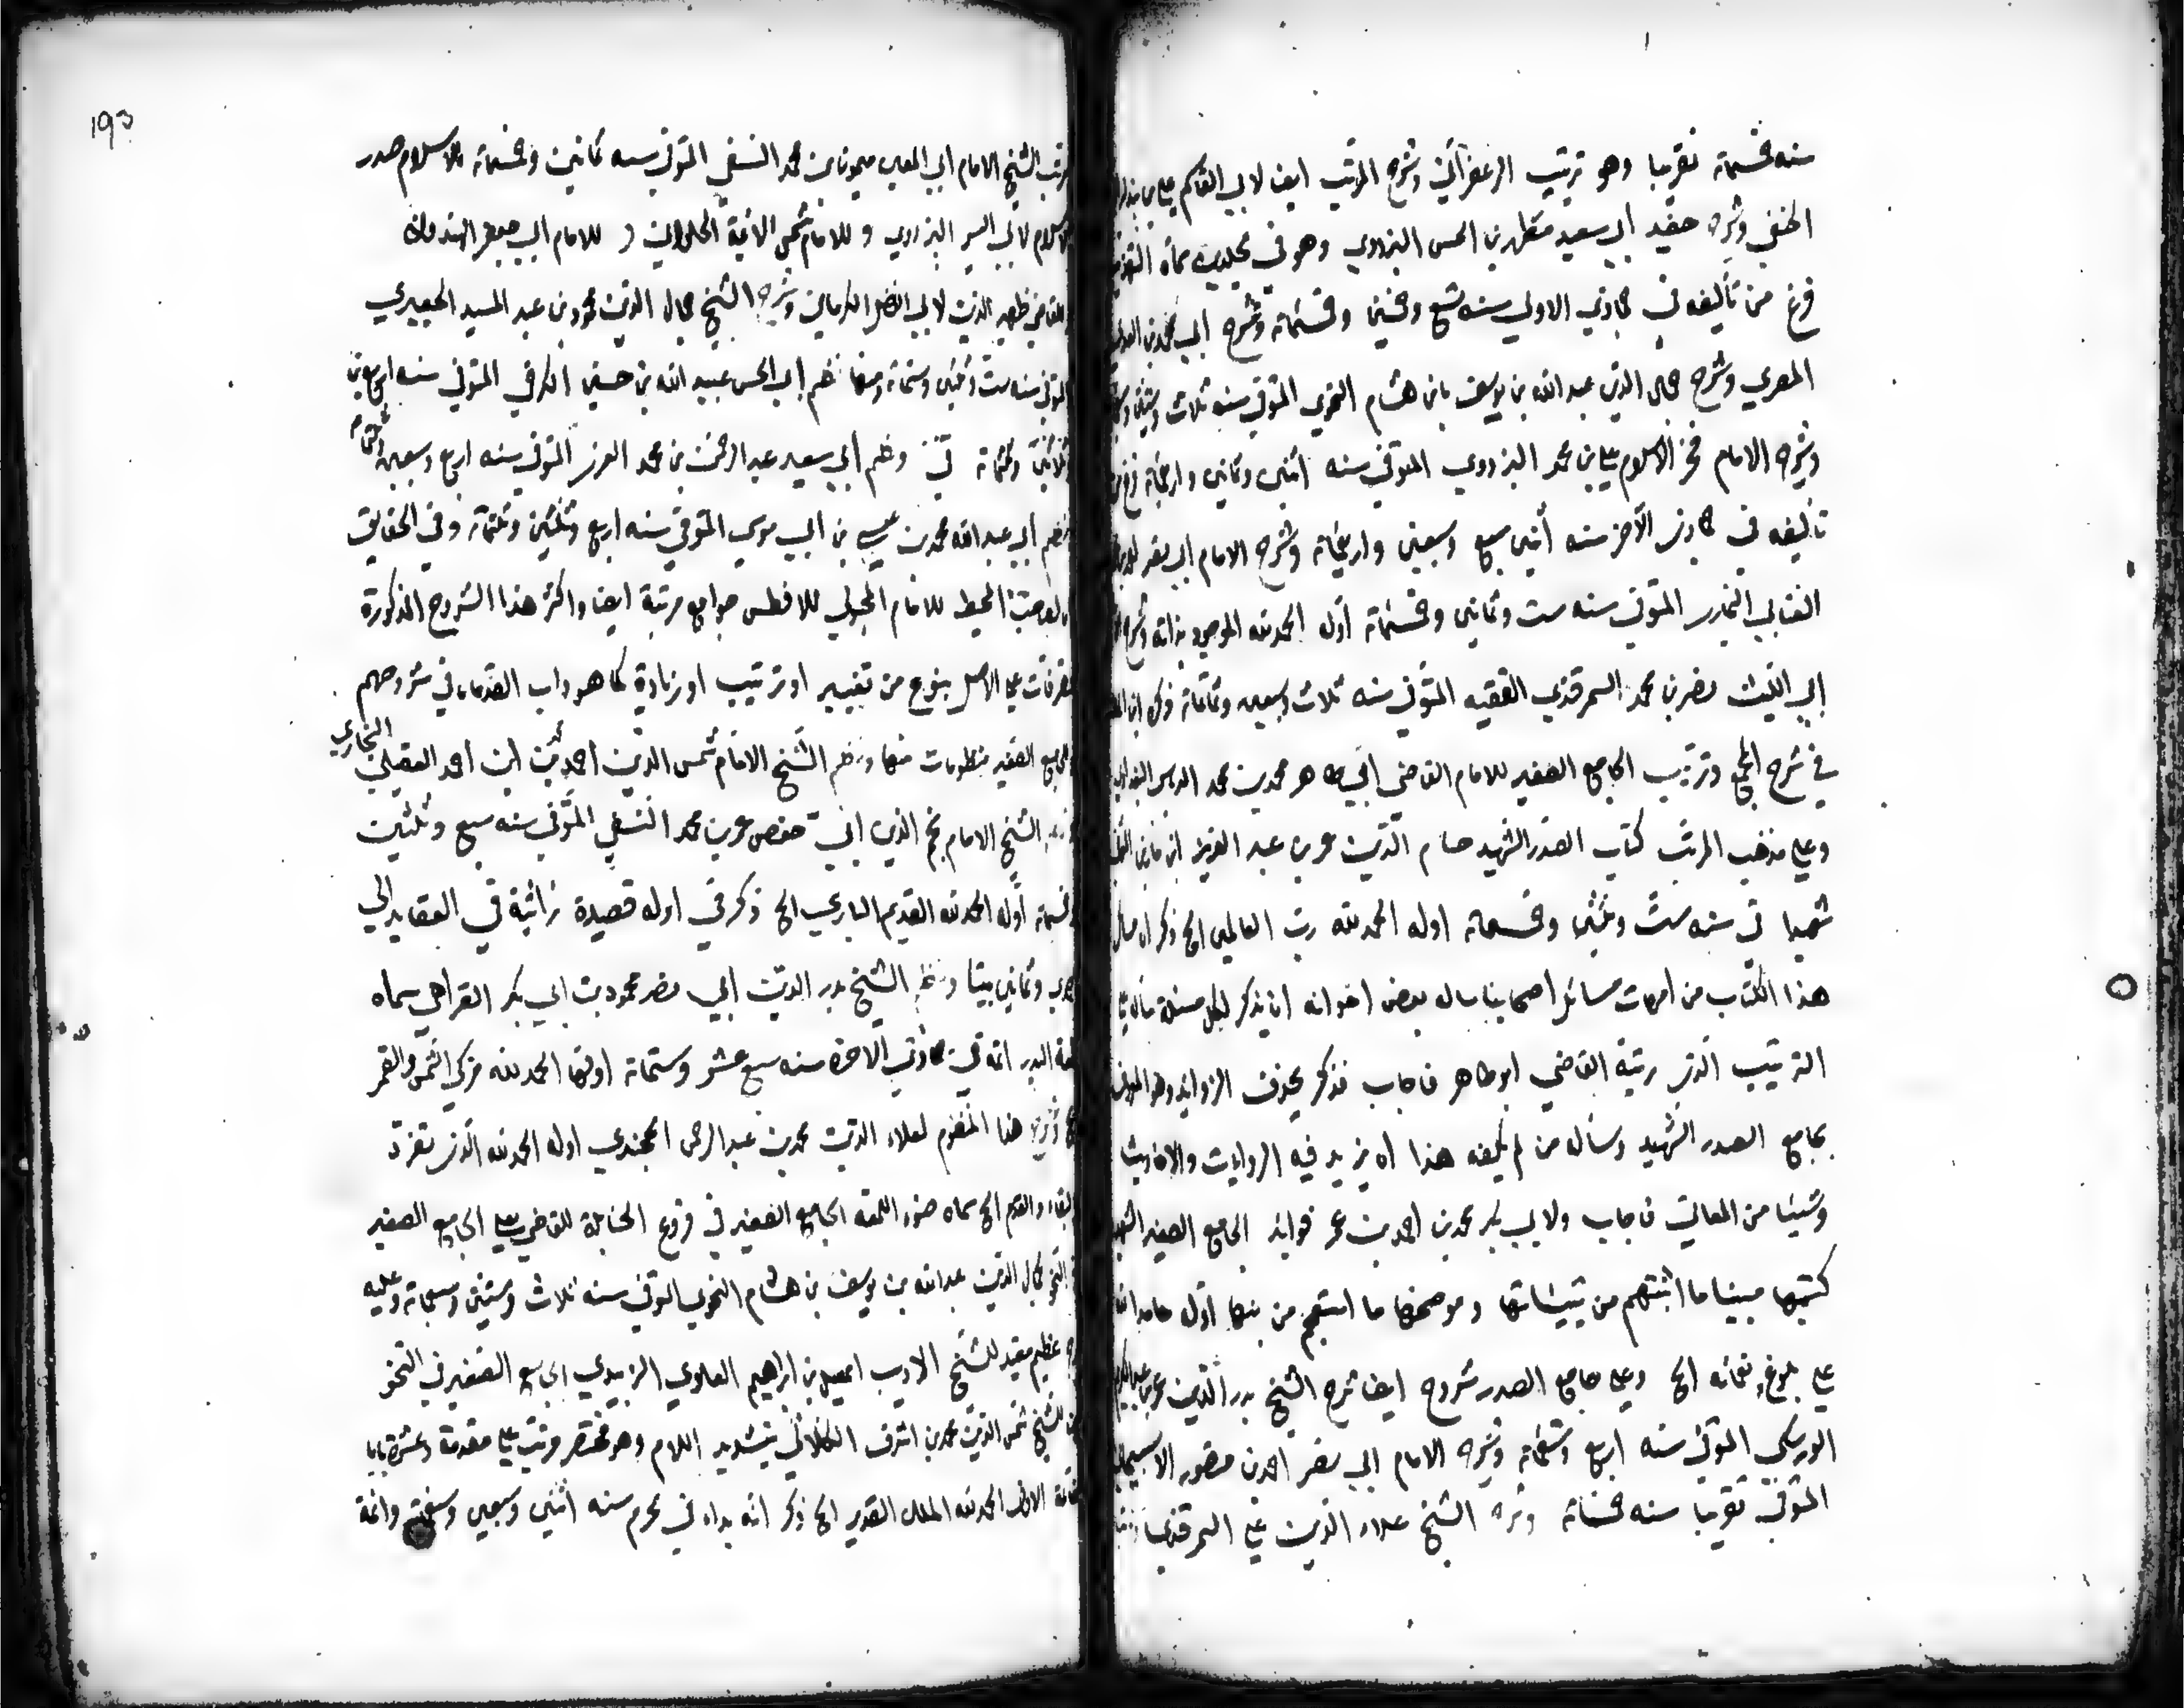 سنه خمسمائة تقريبا وهو ترتيب الزعفراني وشرح المرتب ايضا لابي القاسم علي بن بندار
الحنفي وشرحه حفيد ابي سعيد مطهر بن الحسن اليزدوي وهو في مجلدين سماه التهذيب
فرغ من تأليفه في جمادي الاولي سنه تسع وخمسين وخمسمائة وشرح ابي محمد بن العدل
المعري وشرح جمال الدين عبد الله بن يوسف بابن هشام النحوي المتوفي سنه ثلاث وستين
وشرحه الامام فخر الاسلام علي بن محمد البزدوي المتوفي سنه اثنين وثمانين واربعمائة فرغ من
تأليفه في جمادي الاخر سنه أثني سبع وسبعين واربعمائة وشرح الامام ابي نصر احمد بن
العتابي البخاري المتوفي سنه ست وثمانين وخمسمائة أوله الحمد لله الموجود بذاته وشرح
ابي الليث نصر بن محمد السمرقندي الفقيه المتوفي سنه ثلاث وسبعين وثلثمائة ذكره ابن
في شرح المجمع وترتيب الجامع الصغير للامام القاضي ابي طاهر محمد بن محمد الدباس البغدادي
وعلي مذهب المرتب كتاب الصدر الشهيد حسام الدين عمر بن عبد العزيز ابن مازه
شهيدا في سنه ست وثلثين وخمسمائة اوله الحمد لله رب العالمين الخ ذكر ان مسائل
هذا الكتاب من امهات مسائل اصحابنا ساله بعض اخوانه ان يذكر لكل مسئلة مسائله علي
الترتيب الذي رتبه القاضي ابو طاهر فاجاب فذكر بحذف الزوايد وهو المعروف
بجامع الصدر الشهيد وساله من لم يكفه هذا ان يزيد فيه الروايات والاحاديث
وشيئا من المعاني فاجاب ولابي بكر محمد بن احمد بن عمر فوايد الجامع الصغير الشهيد
كتبها مبينا ما ابتهم من تبيناتها وموضحها ما استعجم من منها اوله حامدا لله
علي بلوغ نعمائه الخ وعلي جامع الصدر شروح ايضا شرح الشيخ بدر الدين عمر بن عبد الكريم
الورسكي المتوفي سنه اربع وتسعمائة وشرحه الامام ابي نصر احمد بن منصور الاسبيجابي
المتوفي تقريبا سنه خمسمائة وشرحه الشيخ علاء الدين علي السمرقندي
193
ورتب الشيخ الامام ابي المعين ميمون ابن محمد النسفي المتوفي سنه ثمانين وخمسمائة وللاسلام صدر
الاسلام لابي اليسر البزدوي وللامام شمس الائمة الحلواني وللامام ابي جعفر الهندواني
وللقاضي ظهير الدين لابي الفضل الكرماني وشرحه الشيخ جمال الدين محمود بن عبد السيد الحصيري
المتوفي سنه ست وثلثين وستمائة ومنها نظم ابي الحسن عبيد الله بن حسين الكرخي المتوفي سنه اربعين
وثلاثين وثلثمائة في ونظم ابي سعيد عبد الرحمن بن محمد العزي المتوفي سنه اربع وسبعين وثلثمائة
ونظم ابي عبد الله محمد بن عيسي بن ابي موسي المتوفي سنه اربع وثلثين وثلثمائة وفي الحقايق
ولصاحب المحيط للامام المحبولي للافطس جوامع مرتبة ايضا واكثر هذا الشروح المذكورة
تصرفات علي الاصل بنوع من تغيير او ترتيب او زيادة كما هو داب القدماء في شروحهم
وللجامع الصغير منظومات منها ونظم الشيخ الامام شمس الدين احمد بن محمد ابن احمد العقيلي البخاري
ونظم الشيخ الامام نجم الدين ابي حفص عمر بن محمد النسفي المتوفي سنه سبع وثلثين
وخمسمائة أوله الحمد لله القديم الباري الخ ذكر في اوله قصيدة رائية في العقايد الي
احدي وثمانين بيتا ونظم الشيخ بدر الدين ابي نصر محمود بن ابي بكر الفراهي سماه
لمعة البدر اتمه في جمادي الاخرة سنه سبع عشر وستمائة اولها الحمد لله مزكي الشمس والقمر
الخ وشرح هذا المنظوم لعلاء الدين محمد بن عبد الرحمن الخجندي اوله الحمد لله الذي تفرد
بالبقاء والقدم الخ سماه ضوء اللمعة الجامع الصغير في فروع الحنابلة للقاضي ابي يعلي الجامع الصغير
في النحو لجمال الدين عبد الله بن يوسف بن هشام النحوي المتوفي سنه ثلاث وستين وسبعمائة وعليه
شرح عظيم مفيد للشيخ الاديب اسمعيل بن ابراهيم العلوي الزبيدي الجامع الصغير في النحو
للشيخ شمس الدين محمد بن اشرف الكلائي بتشديد اللام وهو مختصر مرتب علي مقدمة وعشرة بابا
وخاتمة الاول الحمد لله الملك القدير الخ ذكر انه بداء في محرم سنه اثنين وسبعين وسبعمائة واتمه